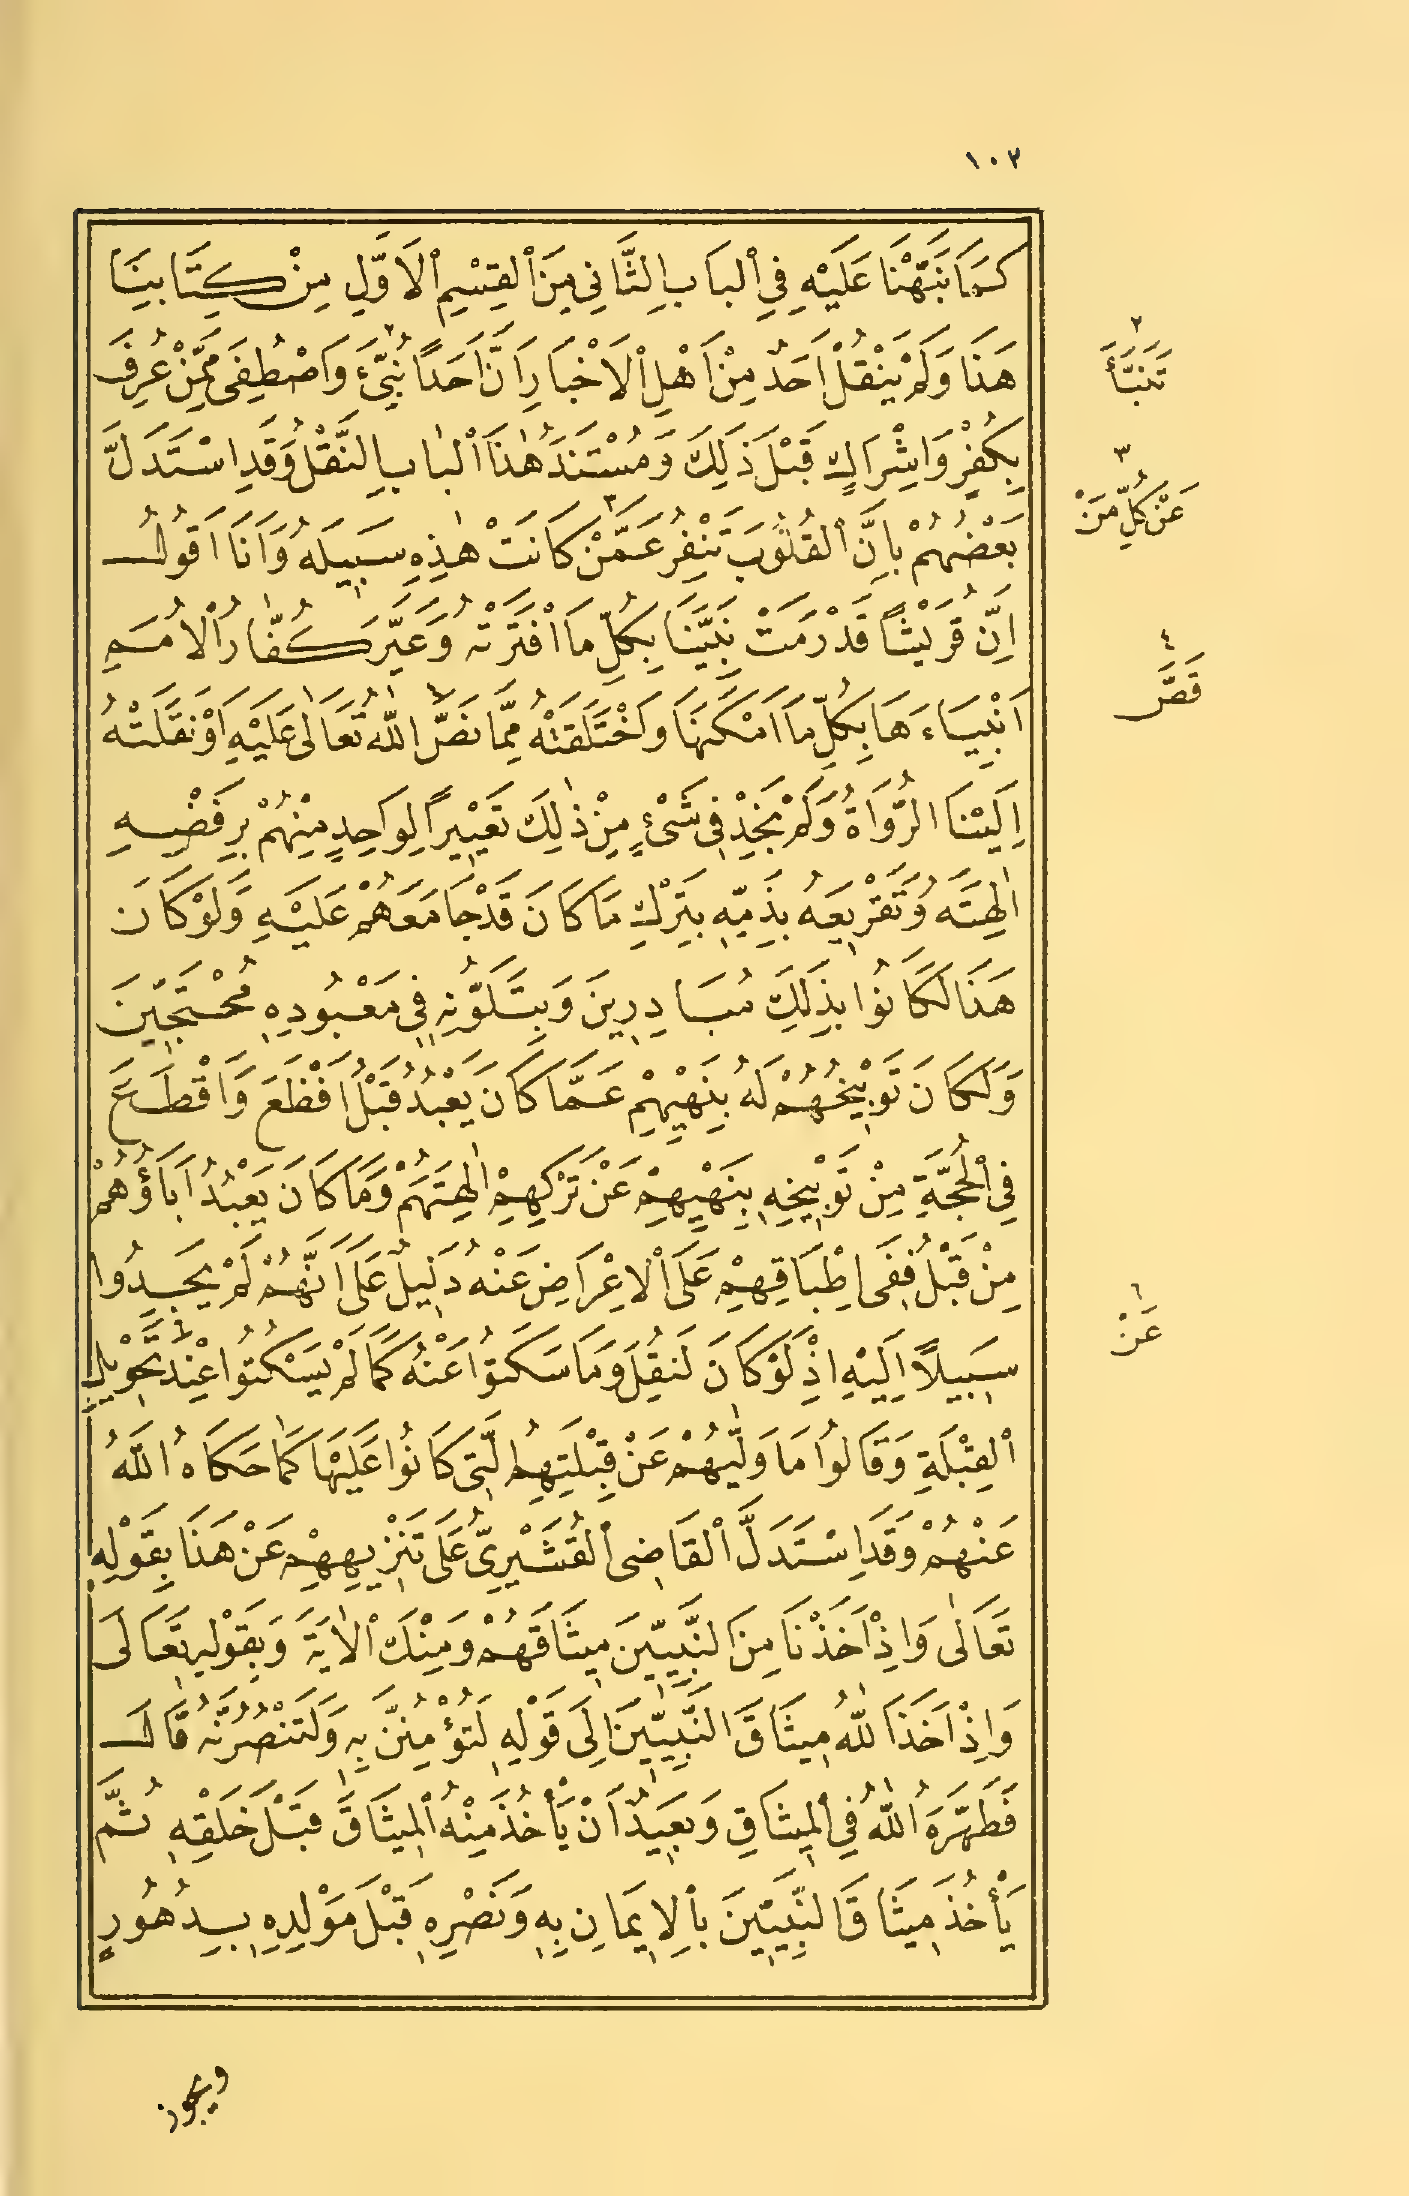 ١٠٢
كَمَا نَبَّهْنَا عَلَيْهِ فِي الْبَابِ الثَّانِي مِنَ الْقِسْمِ الْأَوَّلِ مِنْ كِتَابِنَا
هَذَا وَلَمْ يَنْقُلْ أَحَدٌ مِنْ أَهْلِ الْأَخْبَارِ أَنَّ أَحَدًا نُبِّئَ ٢ وَاصْطُفِىَ مِمَّنْ عُرِفَ
بِكُفْرٍ وَإِشْرَاكٍ قَبْلَ ذَلِكَ وَمُسْتَنَدُ هٰذَا الْبَابِ النَّقْلُ وَقَدِ اسْتَدَلَّ
بَعْضُهُمْ بِأَنَّ الْقُلُوبَ تَنْفِرُ عَمَّنْ ٣ كَانَتْ هٰذِهِ سَبِيلَهُ وَأَنَا أَقُولُ
إِنَّ قُرَيْشًا قَدْ رَمَتْ نَبِيَّنَا بِكُلِّ مَا افْتَرَتْهُ وَعَيَّرَ كُفَّارُ الْأُمَمِ
أَنْبِيَاءَهَا بِكُلِّ مَا أَمْكَنَهَا وَاخْتَلَقَتْهُ مِمَّا نَصَّ ٤ اللّٰهُ تَعَالٰى عَلَيْهِ أَوْ نَقَلَتْهُ
إِلَيْنَا الرُّوَاةُ وَلَمْ نَجِدْ فِى شَىْءٍ مِنْ ذٰلِكَ تَعْيِيرًا لِوَاحِدٍ مِنْهُمْ بِرَفْضِهِ
اٰلِهَتَهُ وَتَقْرِيعَهُ بِذَمِّهِ بِتَرْكِ مَا كَانَ قَدْ جَامَعَهُمْ عَلَيْهِ وَلَوْ كَانَ
هَذَا لَكَانُوا بِذَلِكَ مُبَادِرِينَ وَبِتَلَوُّنِهِ فِى مَعْبُودِهِ مُحْتَجِّينَ
وَلَكَانَ تَوْبِيخُهُمْ لَهُ بِنَهْيِهِمْ عَمَّا كَانَ يَعْبُدُ قَبْلُ أَفْظَعَ وَأَقْطَعَ
فِي الْحُجَّةِ مِنْ تَوْبِيخِهِ بِنَهْيِهِمْ عَنْ تَرْكِهِمْ اٰلِهَتَهُمْ وَمَا كَانَ يَعْبُدُ اٰبَاؤُهُمْ
مِنْ قَبْلُ فَفِى إِطْبَاقِهِمْ عَلَى الْإِعْرَاضِ عَنْهُ دَلِيلٌ عَلَى أَنَّهُمْ لَمْ يَجِدُوا
سَبِيلًا إِلَيْهِ إِذْ لَوْ كَانَ لَنُقِلَ وَمَا سَكَتُوا عَنْهُ كَمَا لَمْ يَسْكُتُوا عِنْدَ ٦ تَحْوِيلِ
الْقِبْلَةِ وَقَالُوا مَا وَلّٰيهُمْ عَنْ قِبْلَتِهِمُ الَّتِى كَانُوا عَلَيْهَا كَمَا حَكَاهُ اللّٰهُ
عَنْهُمْ وَقَدِ اسْتَدَلَّ الْقَاضِى الْقُشَيْرِىُّ عَلَى تَنْزِيهِهِمْ عَنْ هَذَا بِقَوْلِهِ
تَعَالٰى وَإِذْ أَخَذْنَا مِنَ النَّبِيِّينَ مِيثَاقَهُمْ وَمِنْكَ الْاٰيَةَ وَبِقَوْلِهِ تَعَالَى
وَإِذْ أَخَذَ اللّٰهُ مِيثَاقَ النَّبِيِّينَ إِلَى قَوْلِهِ لَتُؤْمِنُنَّ بِهِ وَلَتَنْصُرُنَّهُ قَالَ
فَطَهَّرَهُ اللّٰهُ فِي الْمِيثَاقِ وَبَعِيدٌ أَنْ يَأْخُذَ مِنْهُ الْمِيثَاقَ قَبْلَ خَلْقِهِ ثُمَّ
يَأْخُذَ مِيثَاقَ النَّبِيِّينَ بِالْإِيمَانِ بِهِ وَنَصْرِهِ قَبْلَ مَوْلِدِهِ بِدُهُورٍ
٢
تَنَبَّأَ
٣
عَنْ كُلِّ مَنْ
٤
قَصَّ
٦
عَنْ
ويجوز